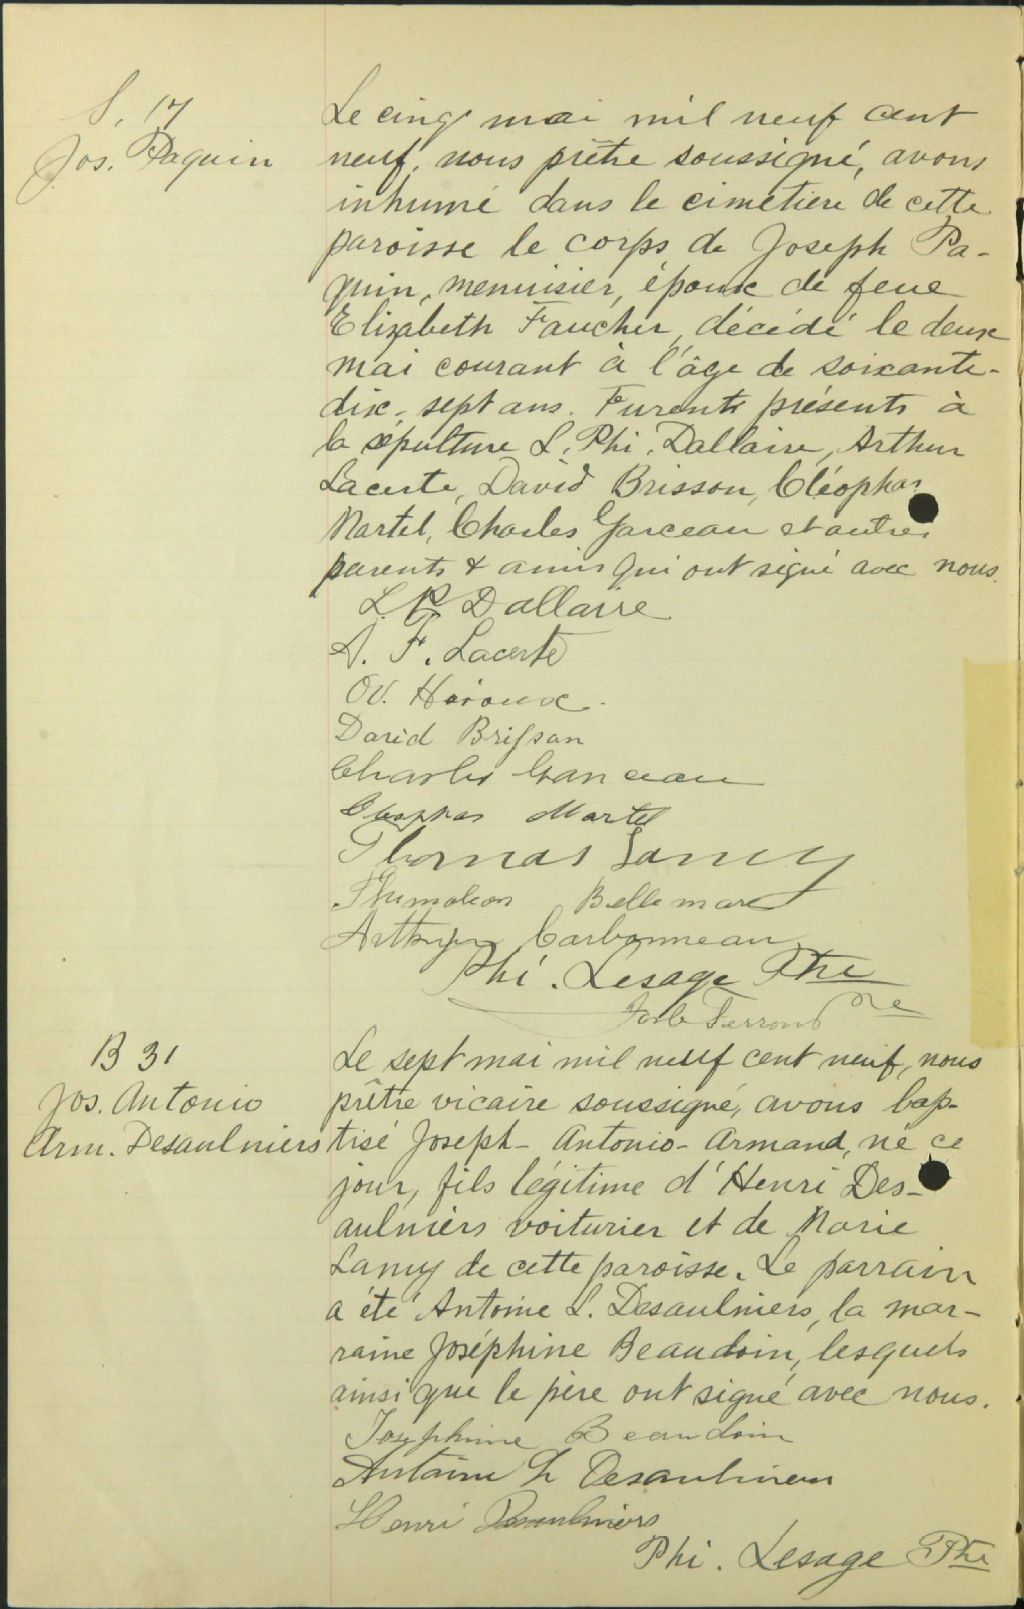 S. 17
Jos. Paquin
Le cinq mai mil neuf cent
neuf, nous prêtre soussigné, avons
inhumé dans le cimetière de cette
paroisse le corps de Joseph Pa-
quin, menuisier, époux de feue
Elizabeth Faucher, décédé le deux
mai courant à l'âge de soixante-
dix-sept ans. Furent présents à
la sépulture L. Phi. Dallaire, Arthur
Lacerte, David Brisson, Cléophas
Martel, Charles Garceau et autres
parents & amis qui ont signé avec nous.
L. P. Dallaire
A. F. Lacerte
Od. Héroux.
David Brisson
Charles Garceau
Cleophas Martel
Thomas Lamy
Bellemare
Arthur Carbonneau
Phi. Lesage Ptre
Ptre
B 31
Jos. Antonio
Arm. Desaulniers
Le sept mai mil neuf cent neuf, nous
prêtre vicaire soussigné, avons bap-
tisé Joseph-Antonio-Armand, né ce
jour, fils légitime d'Henri Des-
aulniers voiturier et de Marie
Lamy de cette paroisse. Le parrain
a été Antoine L. Desaulniers, la mar-
raine Joséphine Beaudoin, lesquels
ainsi que le père ont signé avec nous.
Josephine Beaudoin
Antoine L Desaulniers
Henri Desaulniers
Phi. Lesage Ptre